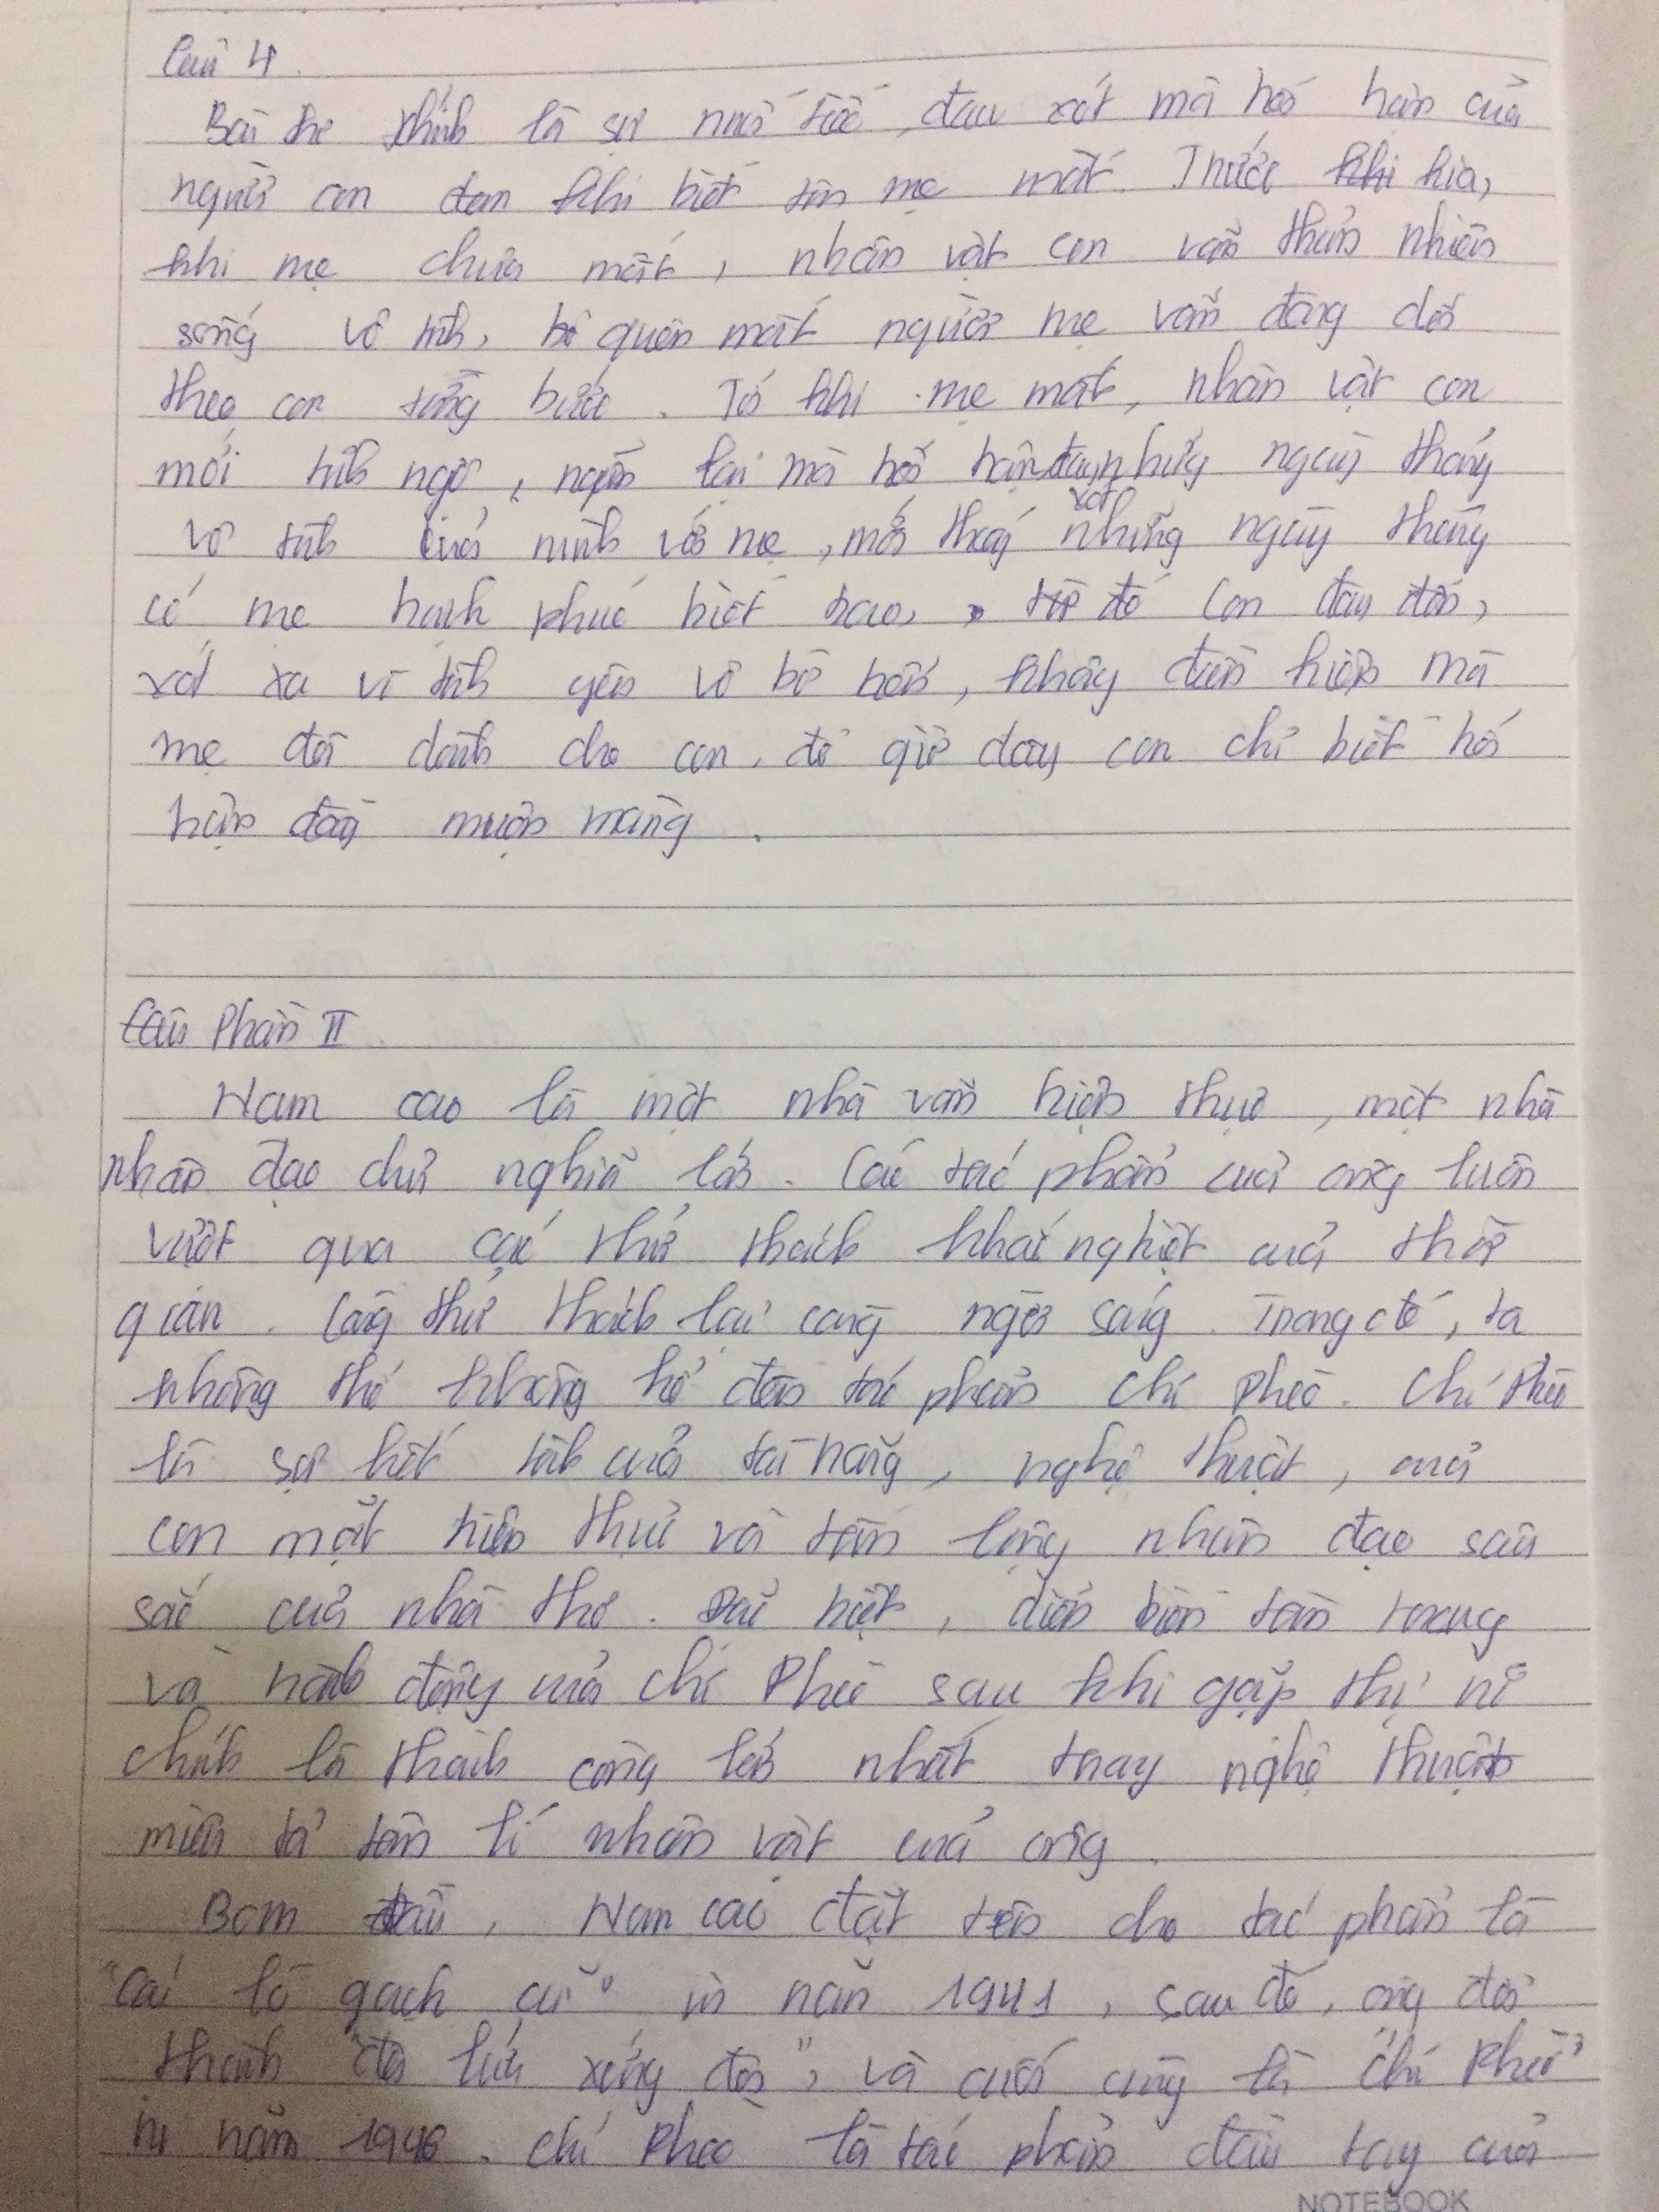 Câu 4.
Bài thơ chính là sự nuối tiếc, đau xót mà hối hận của
người con đem khi biết tin mẹ mất. Trước khi kia,
khi mẹ chưa mất, nhân vật con vẫn thản nhiên
sống vô tình, bỏ quên mất người mẹ vẫn đang dõi
theo con từng bước. Tới khi mẹ mất, nhân vật con
mới tỉnh ngộ, ngẫm lại mà hối hận, đau xót những ngày tháng
vô tình của mình với mẹ, mới thấy những ngày tháng
có mẹ hạnh phúc biết bao, từ đó con đau đớn,
xót xa vì tình yêu vô bờ bến, không điều kiện mà
mẹ đã dành cho con, để giờ đây con chỉ biết hối
hận đầy muộn màng.
Câu Phần II
Nam cao là một nhà văn hiện thực, một nhà
nhân đạo chủ nghĩa lớn. Các tác phẩm của ông luôn
vượt qua các thử thách khắc nghiệt của thời
gian. Càng thử thách lại càng ngời sáng. Trong đó, ta
không thể không kể đến tác phẩm Chí Phèo. Chí Phèo
là sự kết tinh của tài năng, nghệ thuật, của
con mắt hiện thực và tấm lòng nhân đạo sâu
sắc của nhà thơ. Đặc biệt, diễn biến tâm trạng
và hành động của Chí Phèo sau khi gặp thị nở
chính là thành công lớn nhất trong nghệ thuật
miêu tả tâm lí nhân vật của ông.
Bam đầu, Nam cao đặt tên cho tác phẩm là
"Cái lò gạch cũ" in năm 1941, sau đó, ông đổi
thành "đôi lứa xứng đôi", và cuối cùng là "Chí Phèo"
in năm 1946. Chí Pheo là tác phẩm đầu tay của
NOTEBOOK